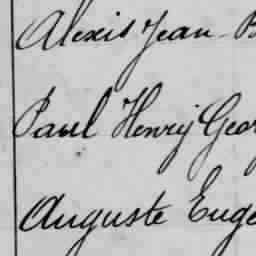 Alexis Jean
Paul Henry Geor
Auguste Euge